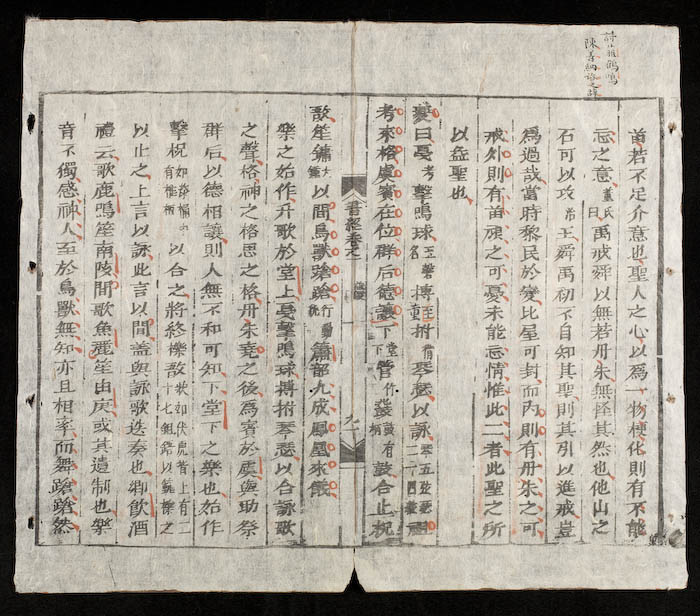 詩小雅鶴鳴
陳善納誨之辞
苗若不足介意也聖人之心以爲一物梗化則有不能
忘之意董氏曰禹戒舜以無若丹朱無怪其然也他山之
石可以攻帝王舜禹初不自知其聖則其引以進戒豈
爲過哉當時黎民於變比屋可封而内則有丹朱之可
戒外則有苗頑之可憂未能忘情惟此二者此聖之所
以益聖也
夔曰戛考擊鳴球玉磬名搏至拊循琴瑟以詠琴五弦瑟二十四弦祖
考來格虞賓在位群后德讓下堂下管竹鼗鼓有柄鼓合止柷
書經卷之
敔笙鏞大鐘以間鳥獸蹌蹌行動貌簫韶九成鳳凰來儀
樂之始作升歌於堂上戛擊鳴球搏拊琴瑟以合詠歌
之聲格神之格思之格丹朱堯之後爲賓於虞與助祭
群后以德相讓則人無不和可知下堂下之樂也始作
擊柷如漆桶中有椎柄以合之將終櫟敔狀如伏虎背上有二十七鉏鋙以籈擽之
以止之上言以詠此言以間蓋與詠歌迭奏也鄉飲酒
禮云歌鹿鳴笙南陔間歌魚麗笙由庚或其遺制也樂
音不獨感神人至於鳥獸無知亦且相率而舞蹌蹌然